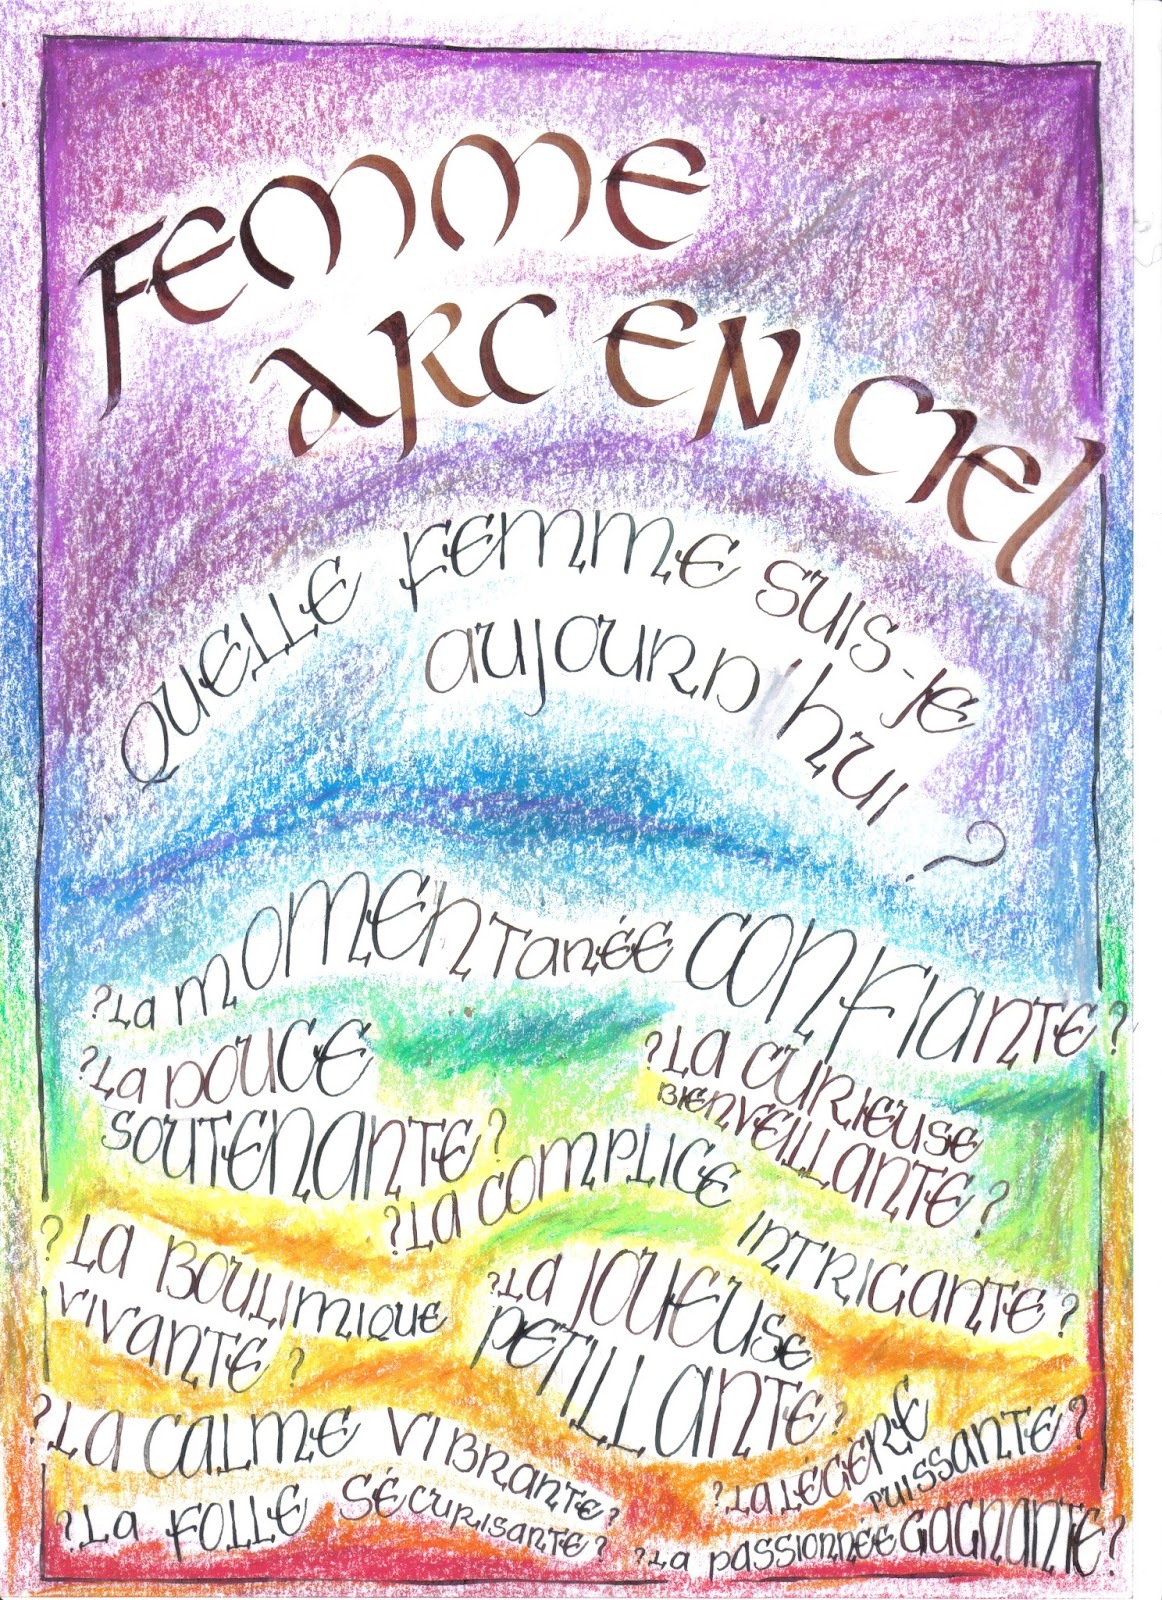 FEMME
ARC EN CIEL
QUELLE FEMME SUIS-JE
AUJOURD'HUI ?
?LA MOMENTANÉE CONFIANTE?
?LA DOUCE
SOUTENANTE?
?LA CURIEUSE
BIENVEILLANTE?
?LA COMPLICE
INTRIGANTE?
?LA BOULIMIQUE
VIVANTE?
?LA JOUEUSE
PETILLANTE?
?LA CALME VIBRANTE?
?LA LÉGÈRE
PUISSANTE?
?LA FOLLE SÉCURISANTE?
?LA PASSIONNÉE GAGNANTE?